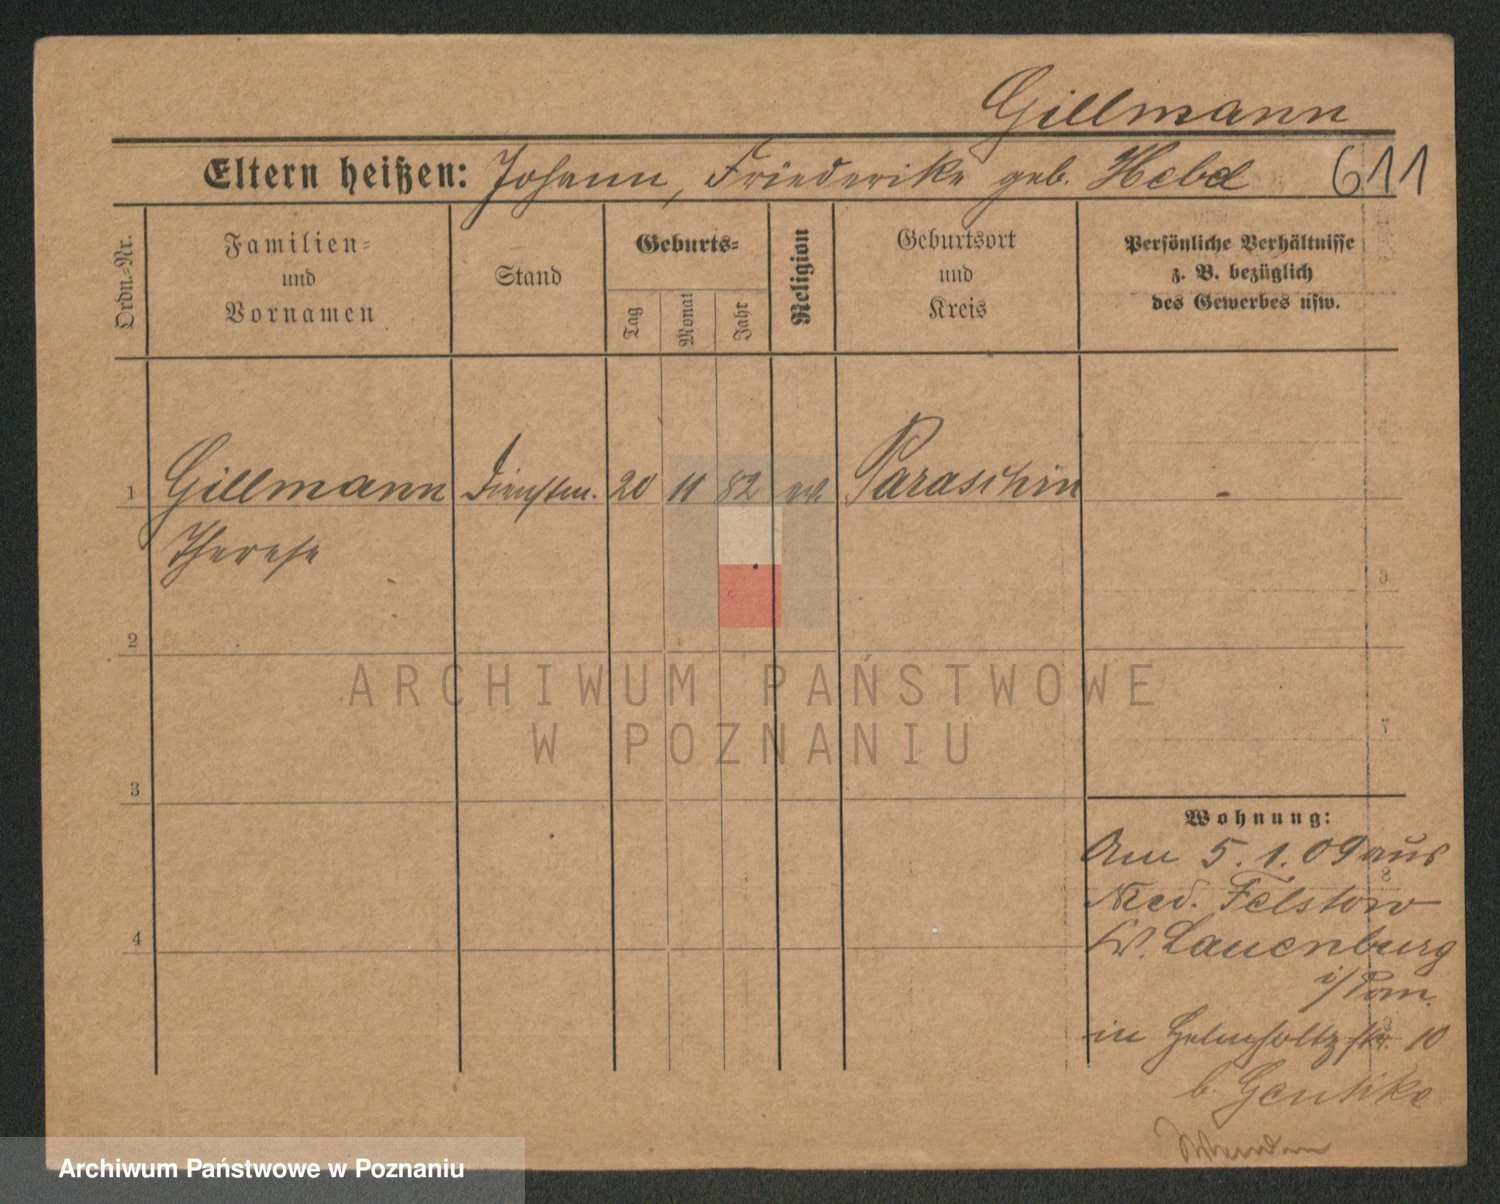 Gillmann
Eltern heißen: Johann, Friederike geb. Hebel 611
Ordn.=Nr.
Familien=
und
Vornamen
Stand
Geburts=
Tag
Monat
Jahr
Religion
Geburtsort
und
Kreis
Persönliche Verhältnisse
z. B. bezüglich
des Gewerbes usw.
1 Gillmann Dienstm. 20 11 82 ev. Paraschin
Therese
2
3
4
Wohnung:
Am 5.1.09 aus
Ned. Felstow
Kr. Lauenburg
i/Pom.
in Helmholtzstr. 10
b. Gentike
ARCHIWUM PAŃSTWOWE
W POZNANIU
Archiwum Państwowe w Poznaniu